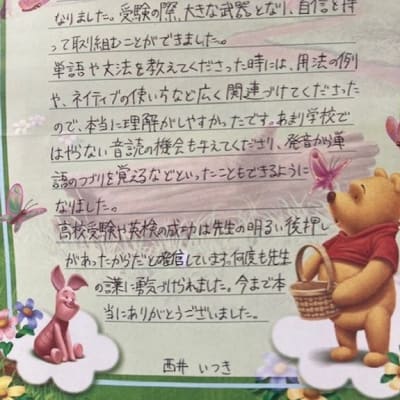 なりました。受験の際、大きな武器となり、自信を持
って取り組むことができました。
単語や文法を教えてくださった時には、用法の例
や、ネイティブの使い方など広く関連づけてくださった
ので、本当に理解がしやすかったです。あまり学校で
はやらない音読の機会も与えてくださり、発音から単
語のつづりを覚えるなどといったこともできるように
なりました。
高校受験や英検の成功は先生の明るい後押し
があったからだと確信しています。何度も先生
の言葉に勇気づけられました。今まで本
当にありがとうございました。
西井 いつき